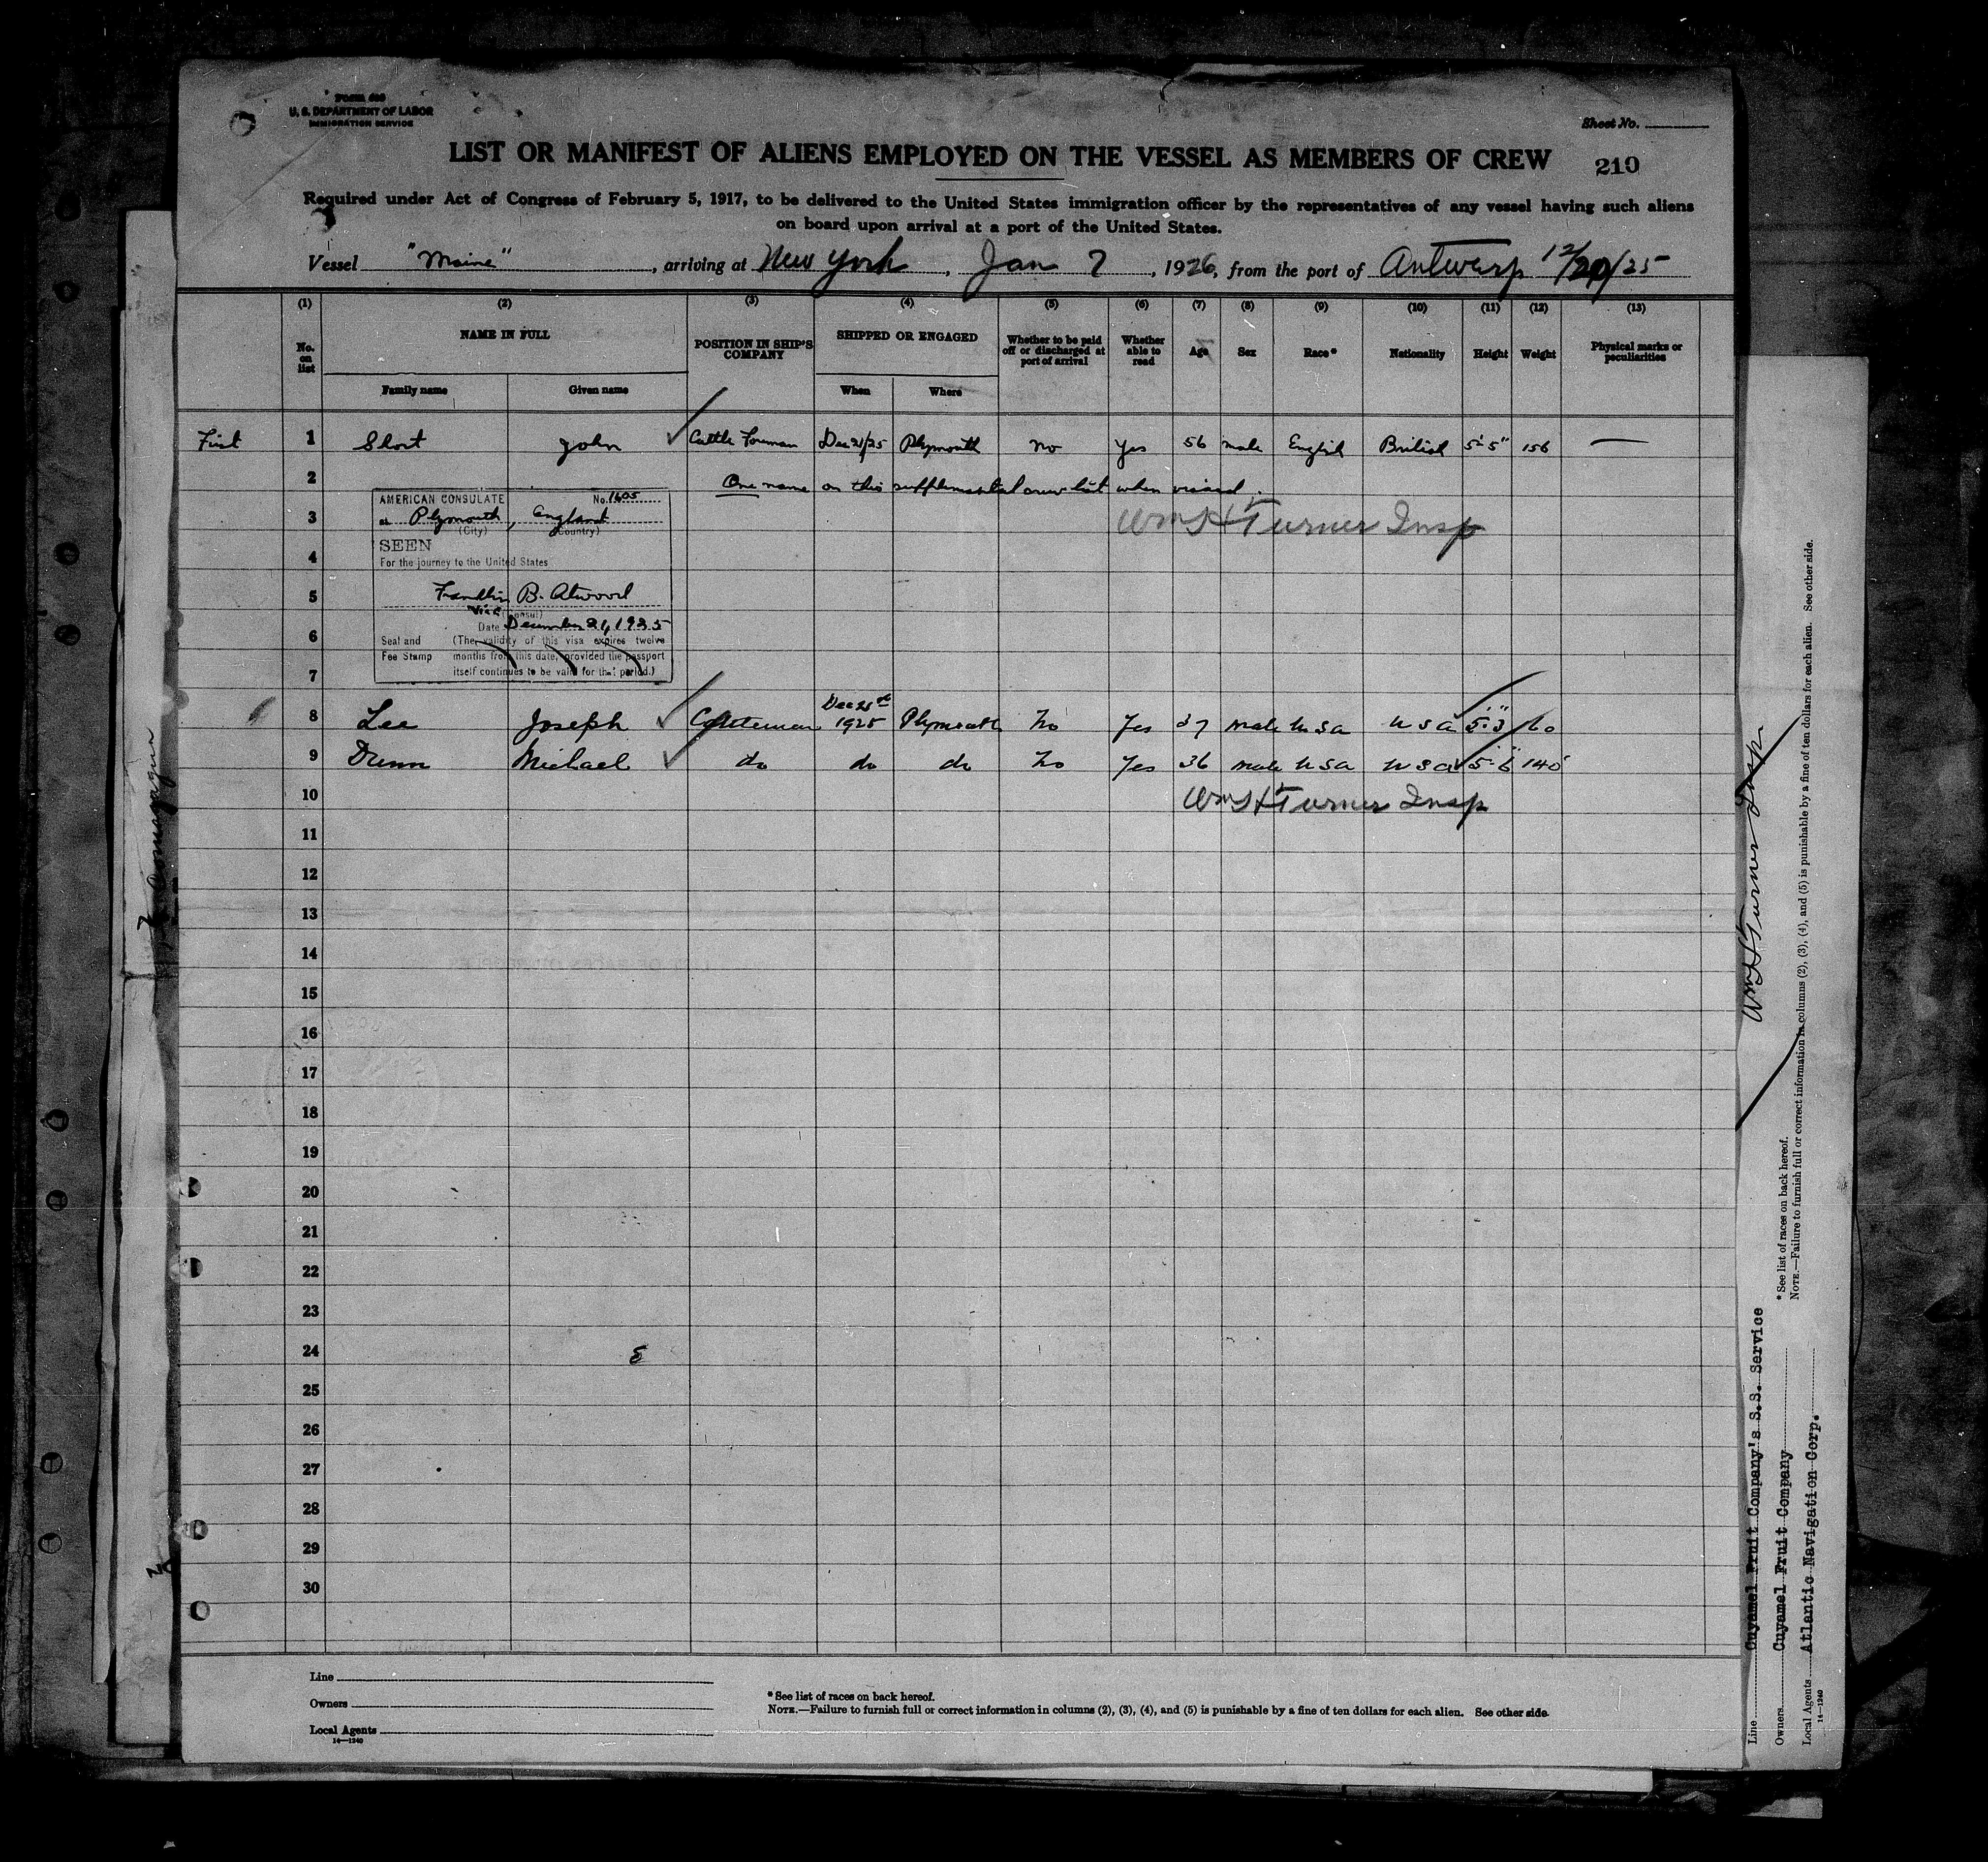 FORM 689
U. S. DEPARTMENT OF LABOR
IMMIGRATION SERVICE
Sheet No.
LIST OR MANIFEST OF ALIENS EMPLOYED ON THE VESSEL AS MEMBERS OF CREW
210
Required under Act of Congress of February 5, 1917, to be delivered to the United States immigration officer by the representatives of any vessel having such aliens
on board upon arrival at a port of the United States.
Vessel "Maine", arriving at New York, Jan 7, 1926, from the port of Antwerp 12/20/25
(1) (2) (3) (4) (5) (6) (7) (8) (9) (10) (11) (12) (13)
No. on list NAME IN FULL POSITION IN SHIP'S COMPANY SHIPPED OR ENGAGED Whether to be paid off or discharged at port of arrival Whether able to read Age Sex Race* Nationality Height Weight Physical marks or peculiarities
Family name Given name When Where
First 1 Short John Cattle Foreman Dec 21/25 Plymouth No Yes 56 male English British 5'5" 156 —
2 One name on this supplemental crew list when visaed.
AMERICAN CONSULATE No. 1605
3 at Plymouth, England Wm H Turner Insp
(City) (Country)
SEEN
4 For the journey to the United States
5 Franklin B. Atwood
Vice (Consul)
6 Date December 21, 1925
Seal and (The validity of this visa expires twelve
Fee Stamp months from this date, provided the passport
7 itself continues to be valid for that period.)
8 Lee Joseph Cattleman Dec 21st 1925 Plymouth No Yes 37 male USA USA 5'3" 160
9 Dunn Michael do do do No Yes 36 male USA USA 5'6" 140
10 Wm H Turner Insp
11
12
13
14
15
16
17
18
19
20
21
22
23
24
25
26
27
28
29
30
Line
Owners
Local Agents
14—1240
* See list of races on back hereof.
NOTE.—Failure to furnish full or correct information in columns (2), (3), (4), and (5) is punishable by a fine of ten dollars for each alien. See other side.
Wm H Turner Insp.
Line Cuyamel Fruit Company's S.S. Service
Owners Cuyamel Fruit Company
Local Agents Atlantic Navigation Corp.
14—1240
* See list of races on back hereof.
NOTE.—Failure to furnish full or correct information in columns (2), (3), (4), and (5) is punishable by a fine of ten dollars for each alien. See other side.